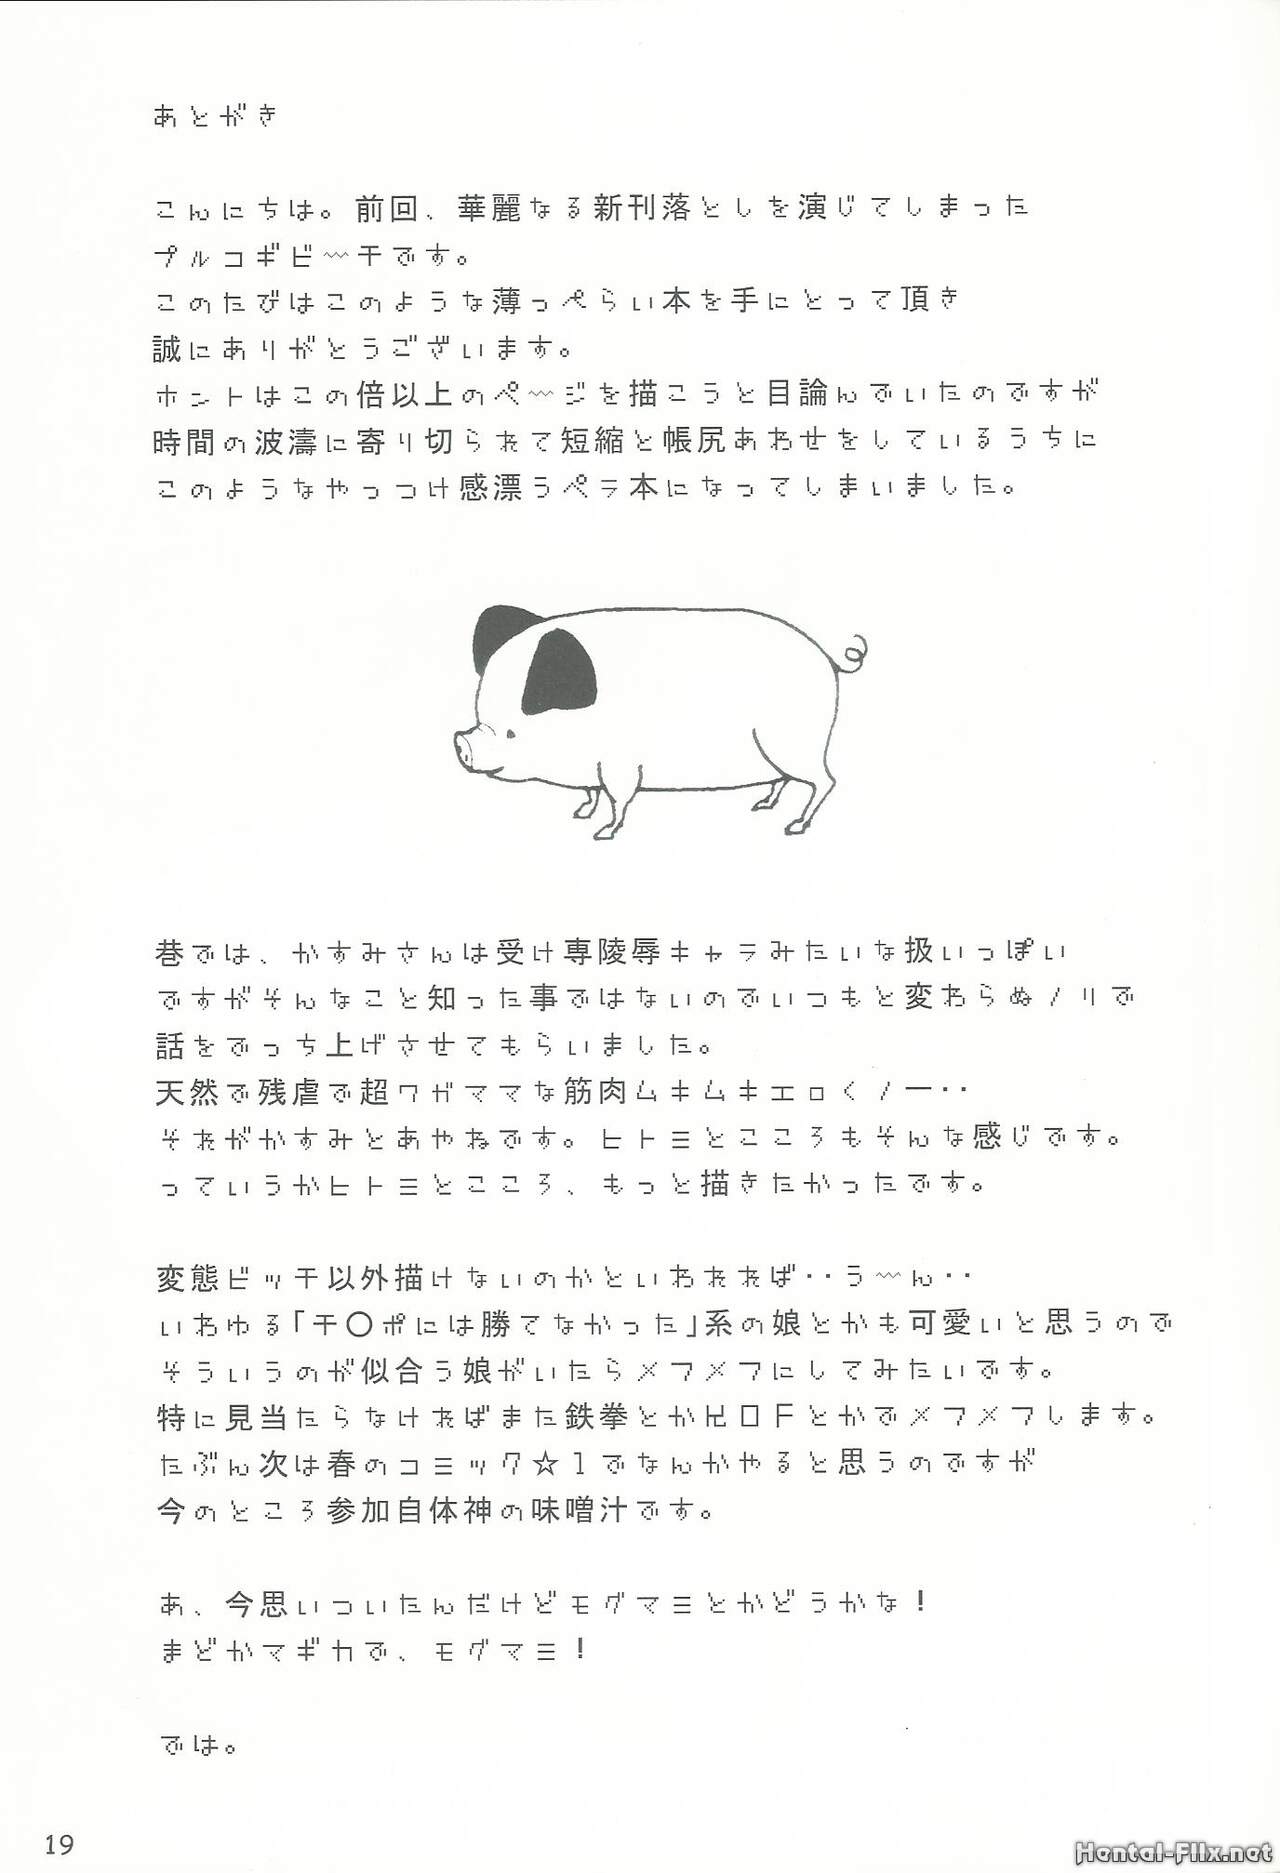 あとがき
こんにちは。前回、華麗なる新刊落としを演じてしまった
プルコギビ〰チです。
このたびはこのような薄っぺらい本を手にとって頂き
誠にありがとうございます。
ホントはこの倍以上のペ〰ジを描こうと目論んでいたのですが
時間の波濤に寄り切られて短縮と帳尻あわせをしているうちに
このようなやっつけ感漂うペラ本になってしまいました。
巷では、かすみさんは受け専陵辱キャラみたいな扱いっぽい
ですがそんなこと知った事ではないのでいつもと変わらぬノリで
話をでっち上げさせてもらいました。
天然で残虐で超ワガママな筋肉ムキムキエロくノ一‥
それがかすみとあやねです。ヒトミとこころもそんな感じです。
っていうかヒトミとこころ、もっと描きたかったです。
変態ビッチ以外描けないのかといわれれば‥う〰ん‥
いわゆる「チ〇ポには勝てなかった」系の娘とかも可愛いと思うので
そういうのが似合う娘がいたらメフメフにしてみたいです。
特に見当たらなければまた鉄拳とかKOFとかでメフメフします。
たぶん次は春のコミック☆1でなんかやると思うのですが
今のところ参加自体神の味噌汁です。
あ、今思いついたんだけどモグマミとかどうかな！
まどかマギカで、モグマミ！
では。
19
Hentai-Flix.net